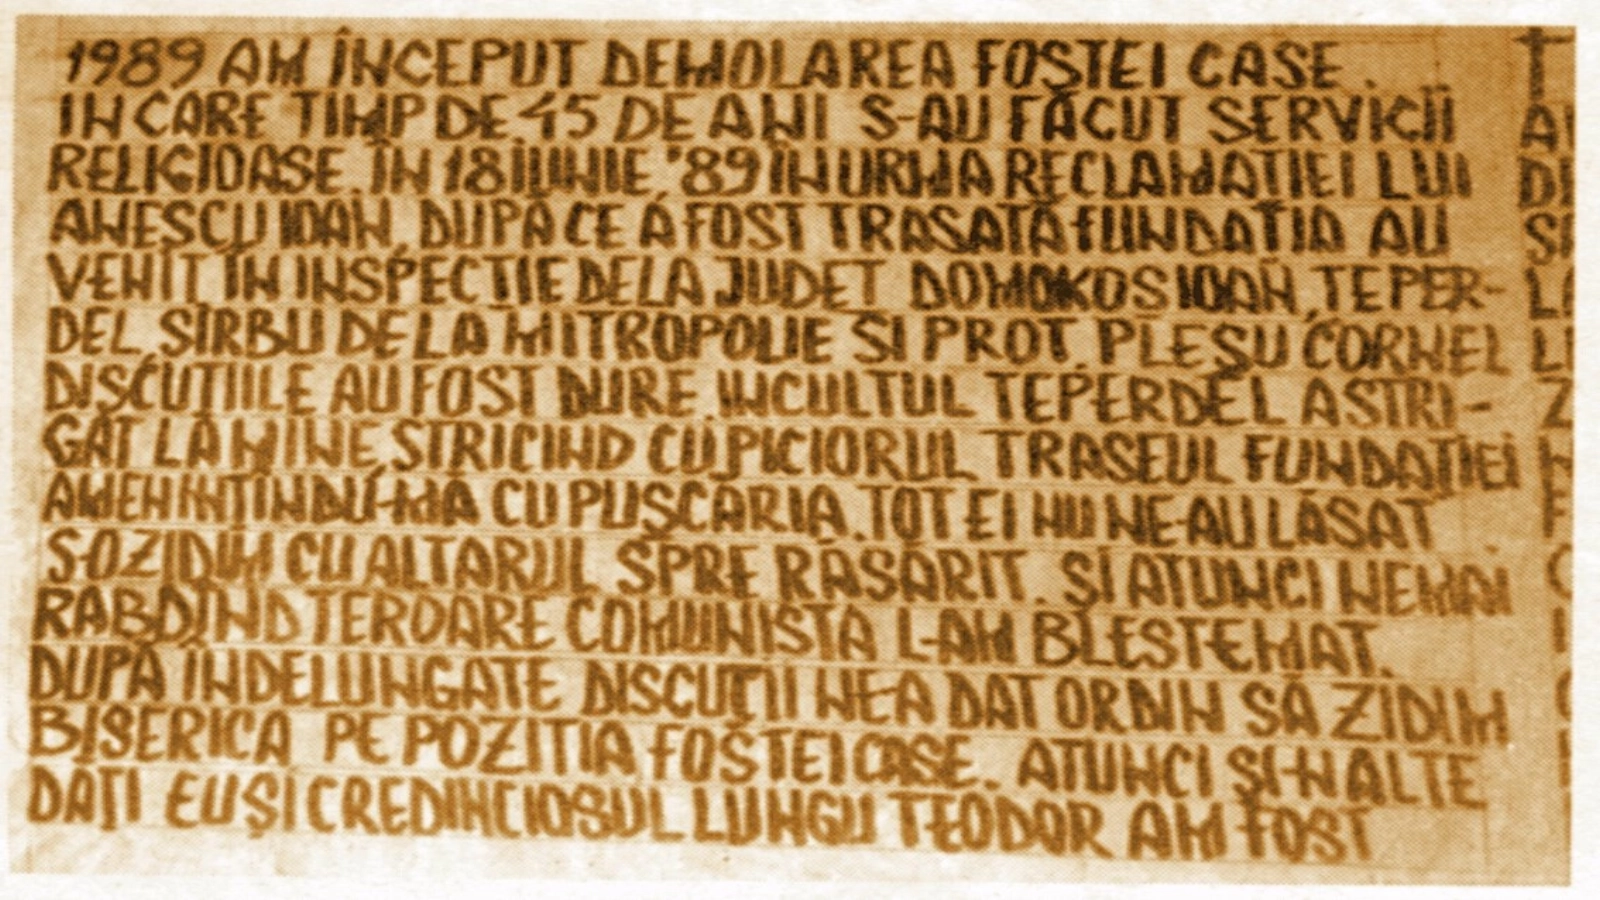 1989 AM ÎNCEPUT DEMOLAREA FOSTEI CASE.
IN CARE TIMP DE 45 DE ANI S-AU FĂCUT SERVICII
RELIGIOASE. ÎN 18 IUNIE '89 ÎN URMA RECLAMAȚIEI LUI
ANESCU IOAN, DUPĂ CE A FOST TRASATĂ FUNDAȚIA AU
VENIT ÎN INSPECȚIE DE LA JUDEȚ DOMOKOS IOAN, TEPER-
DEL SÎRBU DE LA MITROPOLIE ȘI PROT. PLEȘU CORNEL
DISCUȚIILE AU FOST DURE. INCULTUL TEPERDEL A STRI-
GAT LA MINE, STRICIND CU PICIORUL TRASEUL FUNDAȚIEI
AMENINȚINDU-MĂ CU PUȘCĂRIA. TOT EI NU NE-AU LĂSAT
S-O ZIDIM CU ALTARUL SPRE RĂSĂRIT. ȘI ATUNCI NEMAI
RĂBDÎND TEROARE COMUNISTĂ L-AM BLESTEMAT.
DUPĂ ÎNDELUNGATE DISCUȚII NE-A DAT ORDIN SĂ ZIDIM
BISERICA PE POZIȚIA FOSTEI CASE. ATUNCI ȘI-N ALTE
DĂȚI EU ȘI CREDINCIOSUL LUNGU TEODOR AM FOST